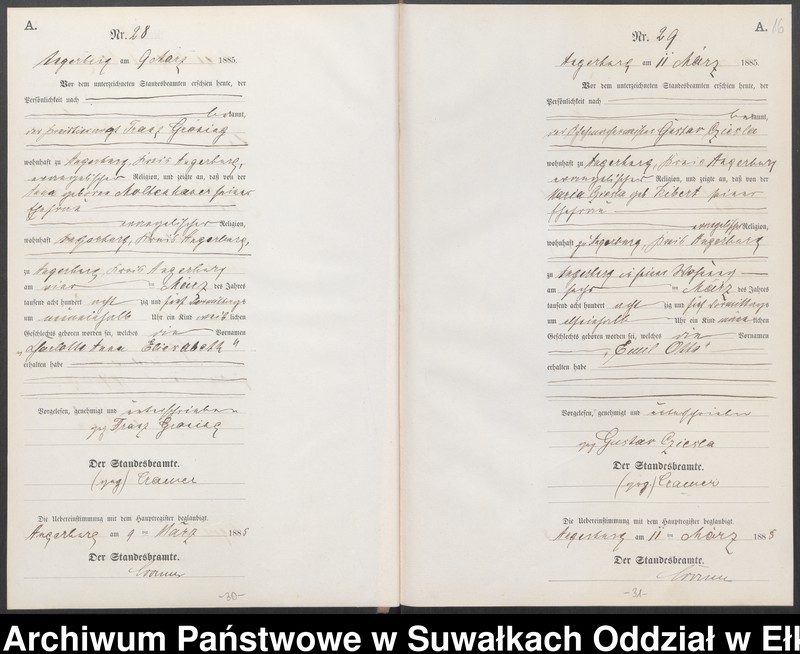 A.
Nr. 28
Angerburg am 9 März 1885.
Vor dem unterzeichneten Standesbeamten erschien heute, der
Persönlichkeit nach
bekannt,
der Franz Grosieg
wohnhaft zu Angerburg, Kreis Angerburg,
evangelischer Religion, und zeigte an, daß von der
geborene Molkenhauer seiner
Ehefrau
evangelischer Religion,
wohnhaft Angerburg, Kreis Angerburg,
zu Angerburg Kreis Angerburg
am vier ten März des Jahres
tausend acht hundert acht zig und fünf Vormittags
um Uhr ein Kind weiblichen
Geschlechts geboren worden sei, welches die Vornamen
„Charlotte Anna Elisabeth"
erhalten habe
Vorgelesen, genehmigt und unterschrieben
gez Franz Grosieg
Der Standesbeamte.
(gez) Cramer
Die Uebereinstimmung mit dem Hauptregister beglaubigt.
Angerburg am 9 ten März 1885
Der Standesbeamte.
Cramer
-30-
A. 16
Nr. 29
Angerburg am 11 März 1885.
Vor dem unterzeichneten Standesbeamten erschien heute, der
Persönlichkeit nach
bekannt,
der Gustav Cziesla
wohnhaft zu Angerburg, Kreis Angerburg
evangelischer Religion, und zeigte an, daß von der
Maria Cziesla geb Libert seiner
Ehefrau
evangelischer Religion,
wohnhaft zu Angerburg, Kreis Angerburg
zu Angerburg in seiner Wohnung
am sechs ten März des Jahres
tausend acht hundert acht zig und fünf Vormittags
um Uhr ein Kind männlichen
Geschlechts geboren worden sei, welches die Vornamen
„Emil Otto"
erhalten habe
Vorgelesen, genehmigt und unterschrieben
gez Gustav Cziesla
Der Standesbeamte.
(gez) Cramer
Die Uebereinstimmung mit dem Hauptregister beglaubigt.
Angerburg am 11 ten März 1885
Der Standesbeamte.
Cramer
-31-
Archiwum Państwowe w Suwałkach Oddział w Ełk